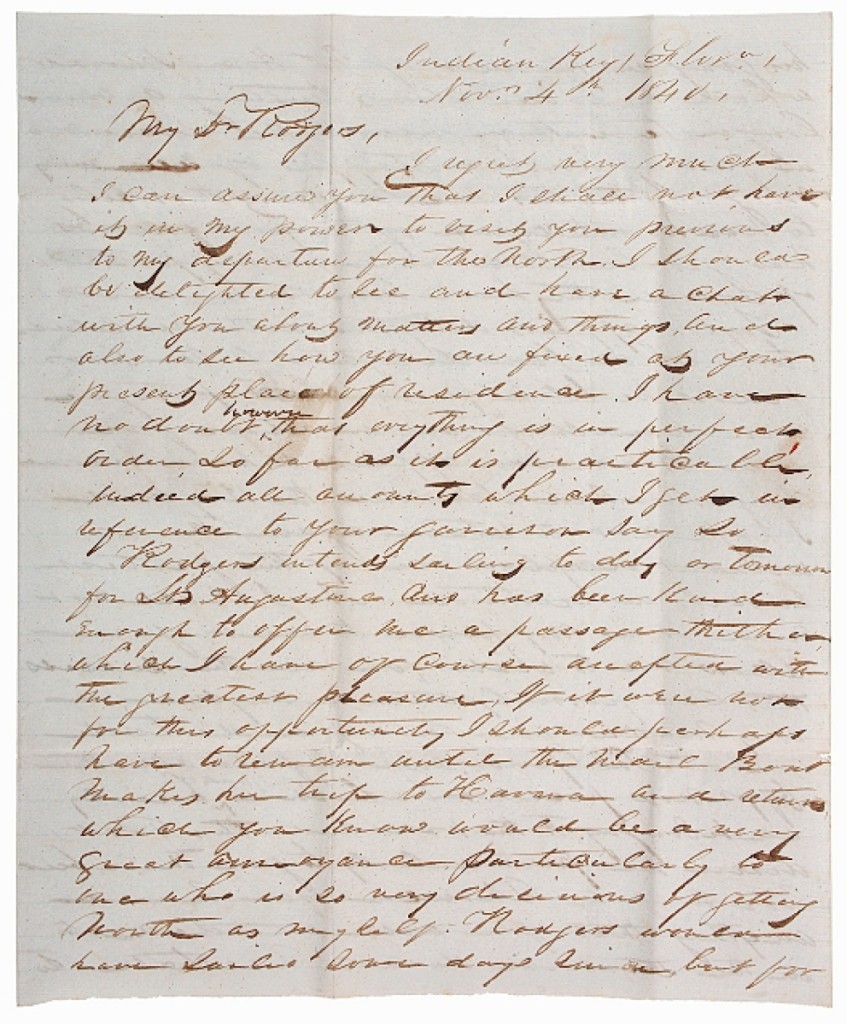 Indian Key, Flora,
Novr 4th 1840.
My Dr Rogers,
I regret very much
I can assure you that I shall not have
it in my power to visit you previous
to my departure for the North. I should
be delighted to see and have a chat
with you about matters and things, and
also to see how you are fixed at your
present place of residence. I have
no doubt, however, that evything is in perfect
order so far as it is practicable,
indeed all accounts which I get in
reference to your garrison say so.
Rodgers intends sailing to day or tomorrow
for St Augustine, and has been kind
enough to offer me a passage thither,
which I have of course accepted with
the greatest pleasure. If it were not
for this opportunity I should perhaps
have to remain until the Mail Boat
makes her trip to Havana and returns
which you know would be a very
great annoyance particularly to
one who is so very desirous of getting
North as myself. Rodgers would
have sailed some days since, but for